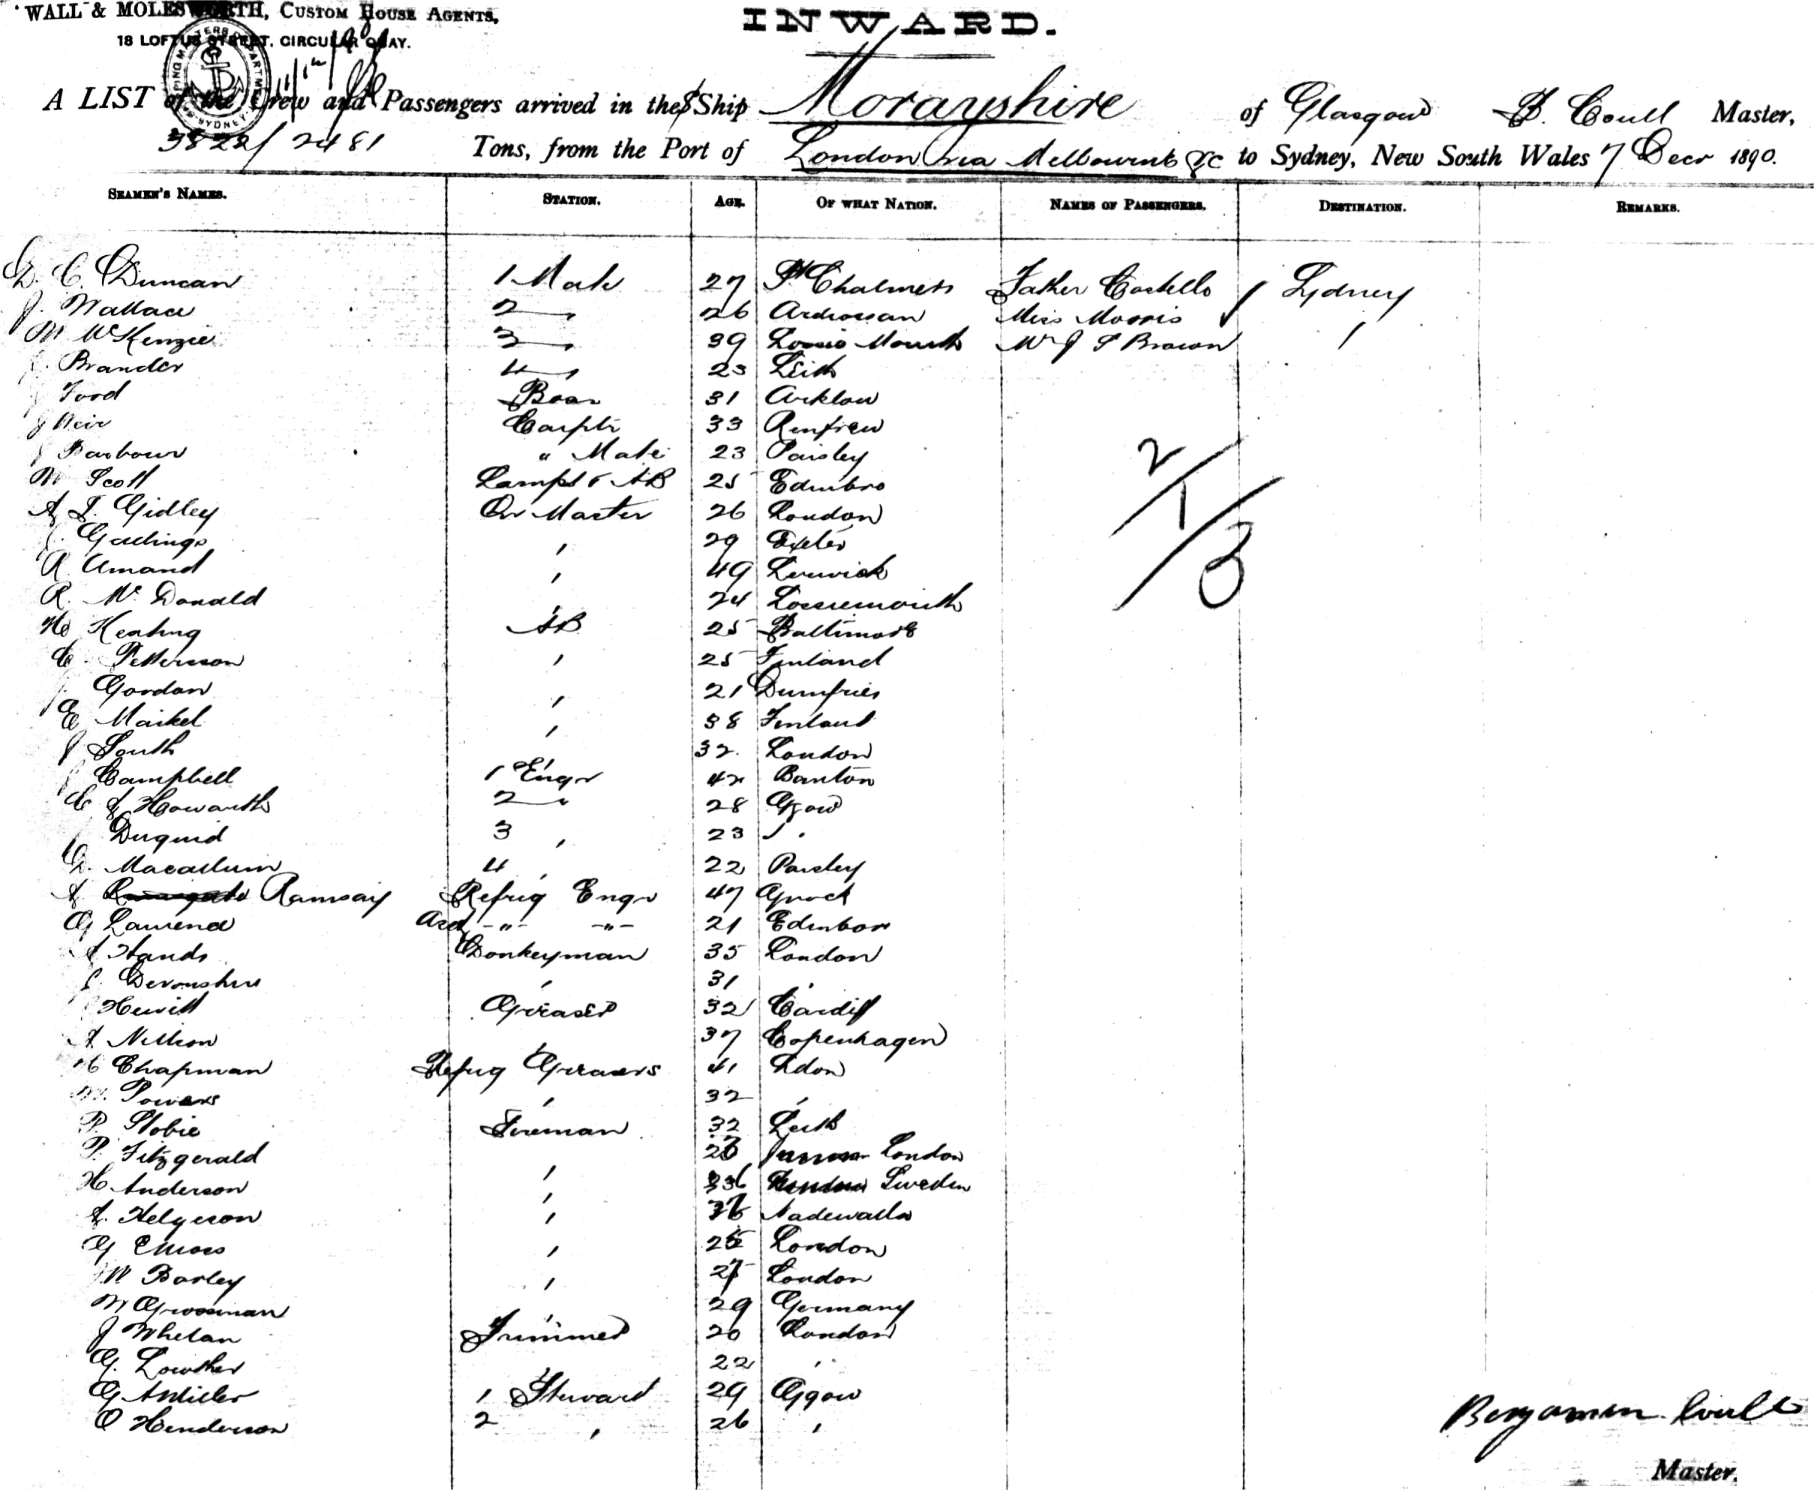 WALL & MOLESWORTH, CUSTOM HOUSE AGENTS,
18 LOFTUS STREET, CIRCULAR QUAY.
INWARD.
A LIST of the Crew and Passengers arrived in the Ship Morayshire of Glasgow B. Coull Master,
3822/2481 Tons, from the Port of London via Melbourne &c to Sydney, New South Wales 7 Decr 1890.
SEAMEN'S NAMES. STATION. AGE. OF WHAT NATION. NAMES OF PASSENGERS. DESTINATION. REMARKS.
D. C. Duncan 1 Mate 27 Pt Chalmers Father Costello Sydney
J. Wallace 2 " 26 Ardrossan Miss Morris
M McKenzie 3 " 39 Mouth Mr J P Brown
Brander 4 " 23 Leith
Ford Bosn 31 Arklow
J Weir Carptr 33 Renfrew
Barbour " Mate 23 Paisley
W Scott Lamps & AB 25 Edinbro
A J. Gidley Qr Master 26 London
29 Exeter
R Amand 49 Lerwick
R. Mc Donald 24 Lossiemouth
Keating AB 25 Baltimore
C. Petterson 25 Finland
Gordon 21 Dumfries
E Maikel 38 Finland
J South 32. London
Campbell 1 Engr 42 Banton
C J Howarth 2 " 28 Ggow
Duguid 3 " 23 "
D. Macallum 4 " 22 Paisley
A Ramsay Refrig Engr 47 Gnock
G Lawrence Asst -"- -"- 21 Edinbor
A Hands Donkeyman 35 London
Devonshire 31
Hewitt Greaser 32 Cardiff
A Neilson 37 Copenhagen
H Chapman Refrig Greasers 41 Ldon
W. Powers 32 "
P. Stobie Fireman 32 Leith
P. Fitzgerald London
H Anderson 36 Sweden
A. Helgeson
G London
W Barley London
W Grossman 29 Germany
J Whelan Trimmer 20 London
G. Lowther 22 "
G A Miller 1 Steward 29 Ggow
O Henderson 2 " 26 "
2/1/3
Benjamin Coull
Master.